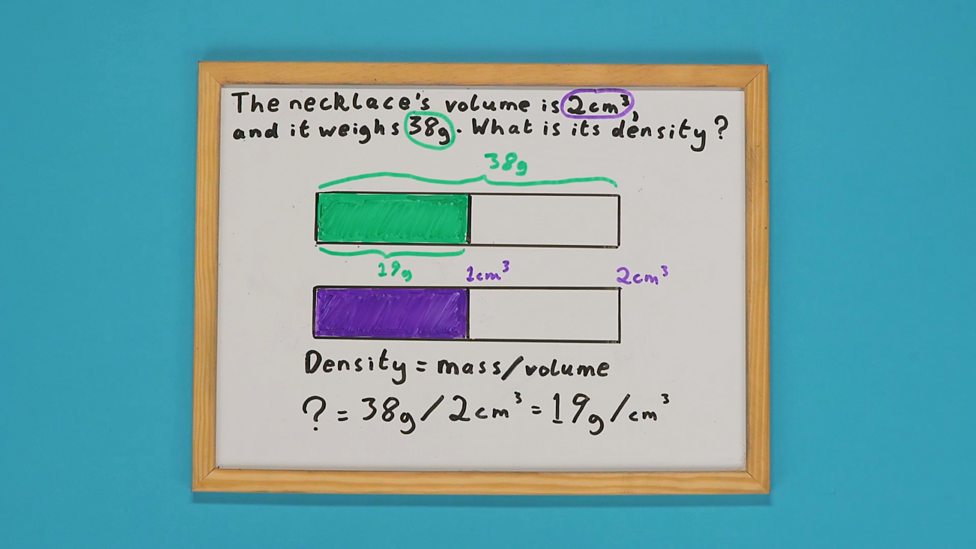 The necklace's volume is 2cm³,
and it weighs 38g. What is its density?
38g
19g 1cm³ 2cm³
Density = mass/volume
? = 38g/2cm³ = 19g/cm³